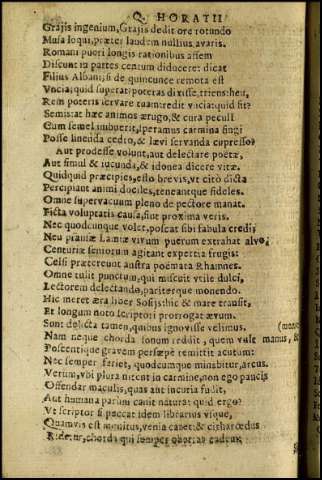 Q. HORATII
Grajis ingenium, Grajis dedit ore rotundo
Musa loqui, præter laudem nullius avaris.
Romani pueri longis rationibus assem
Discunt in partes centum diducere: dicat
Filius Albani, si de quincunce remota est
Vncia; quid superat? poteras dixisse, triens: heu,
Rem poteris servare tuam: redit vncia; quid fit?
Semis: at hæc animos ærugo, & cura peculî
Cum semel imbuerit, speramus carmina fingi
Posse linenda cedro, & lævi servanda cupresso?
Aut prodesse volunt, aut delectare poëtæ,
Aut simul & iucunda, & idonea dicere vitæ.
Quidquid præcipies, esto brevis, vt citò dicta
Percipiant animi dociles, teneantque fideles.
Omne supervacuum pleno de pectore manat.
Ficta voluptatis causa, sint proxima veris.
Nec quodcunque volet, poscat sibi fabula credi;
Neu pransæ Lamiæ vivum puerum extrahat alvo;
Centuriæ seniorum agitant expertia frugis:
Celsi prætereunt austra poëmata Rhamnes.
Omne tulit punctum, qui miscuit vtile dulci,
Lectorem delectando, pariterque monendo.
Hic meret æra liber Sosijs: hic & mare transit,
Et longum noto scriptori prorrogat ævum.
Sunt delicta tamen, quibus ignovisse velimus.
Nam neque chorda sonum reddit, quem vult manus, &
Poscentique gravem persæpè remittit acutum:
Nec semper feriet, quodcumque minabitur, arcus.
Verum, vbi plura nitent in carmine, non ego paucis
Offendar maculis, quas aut incuria fudit,
Aut humana parum cavit natura: quid ergo?
Vt scriptor si peccat idem librarius vsque,
Quamvis est monitus, venia caret: & citharœdus
Ridetur, chorda qui semper oberrat eadem: